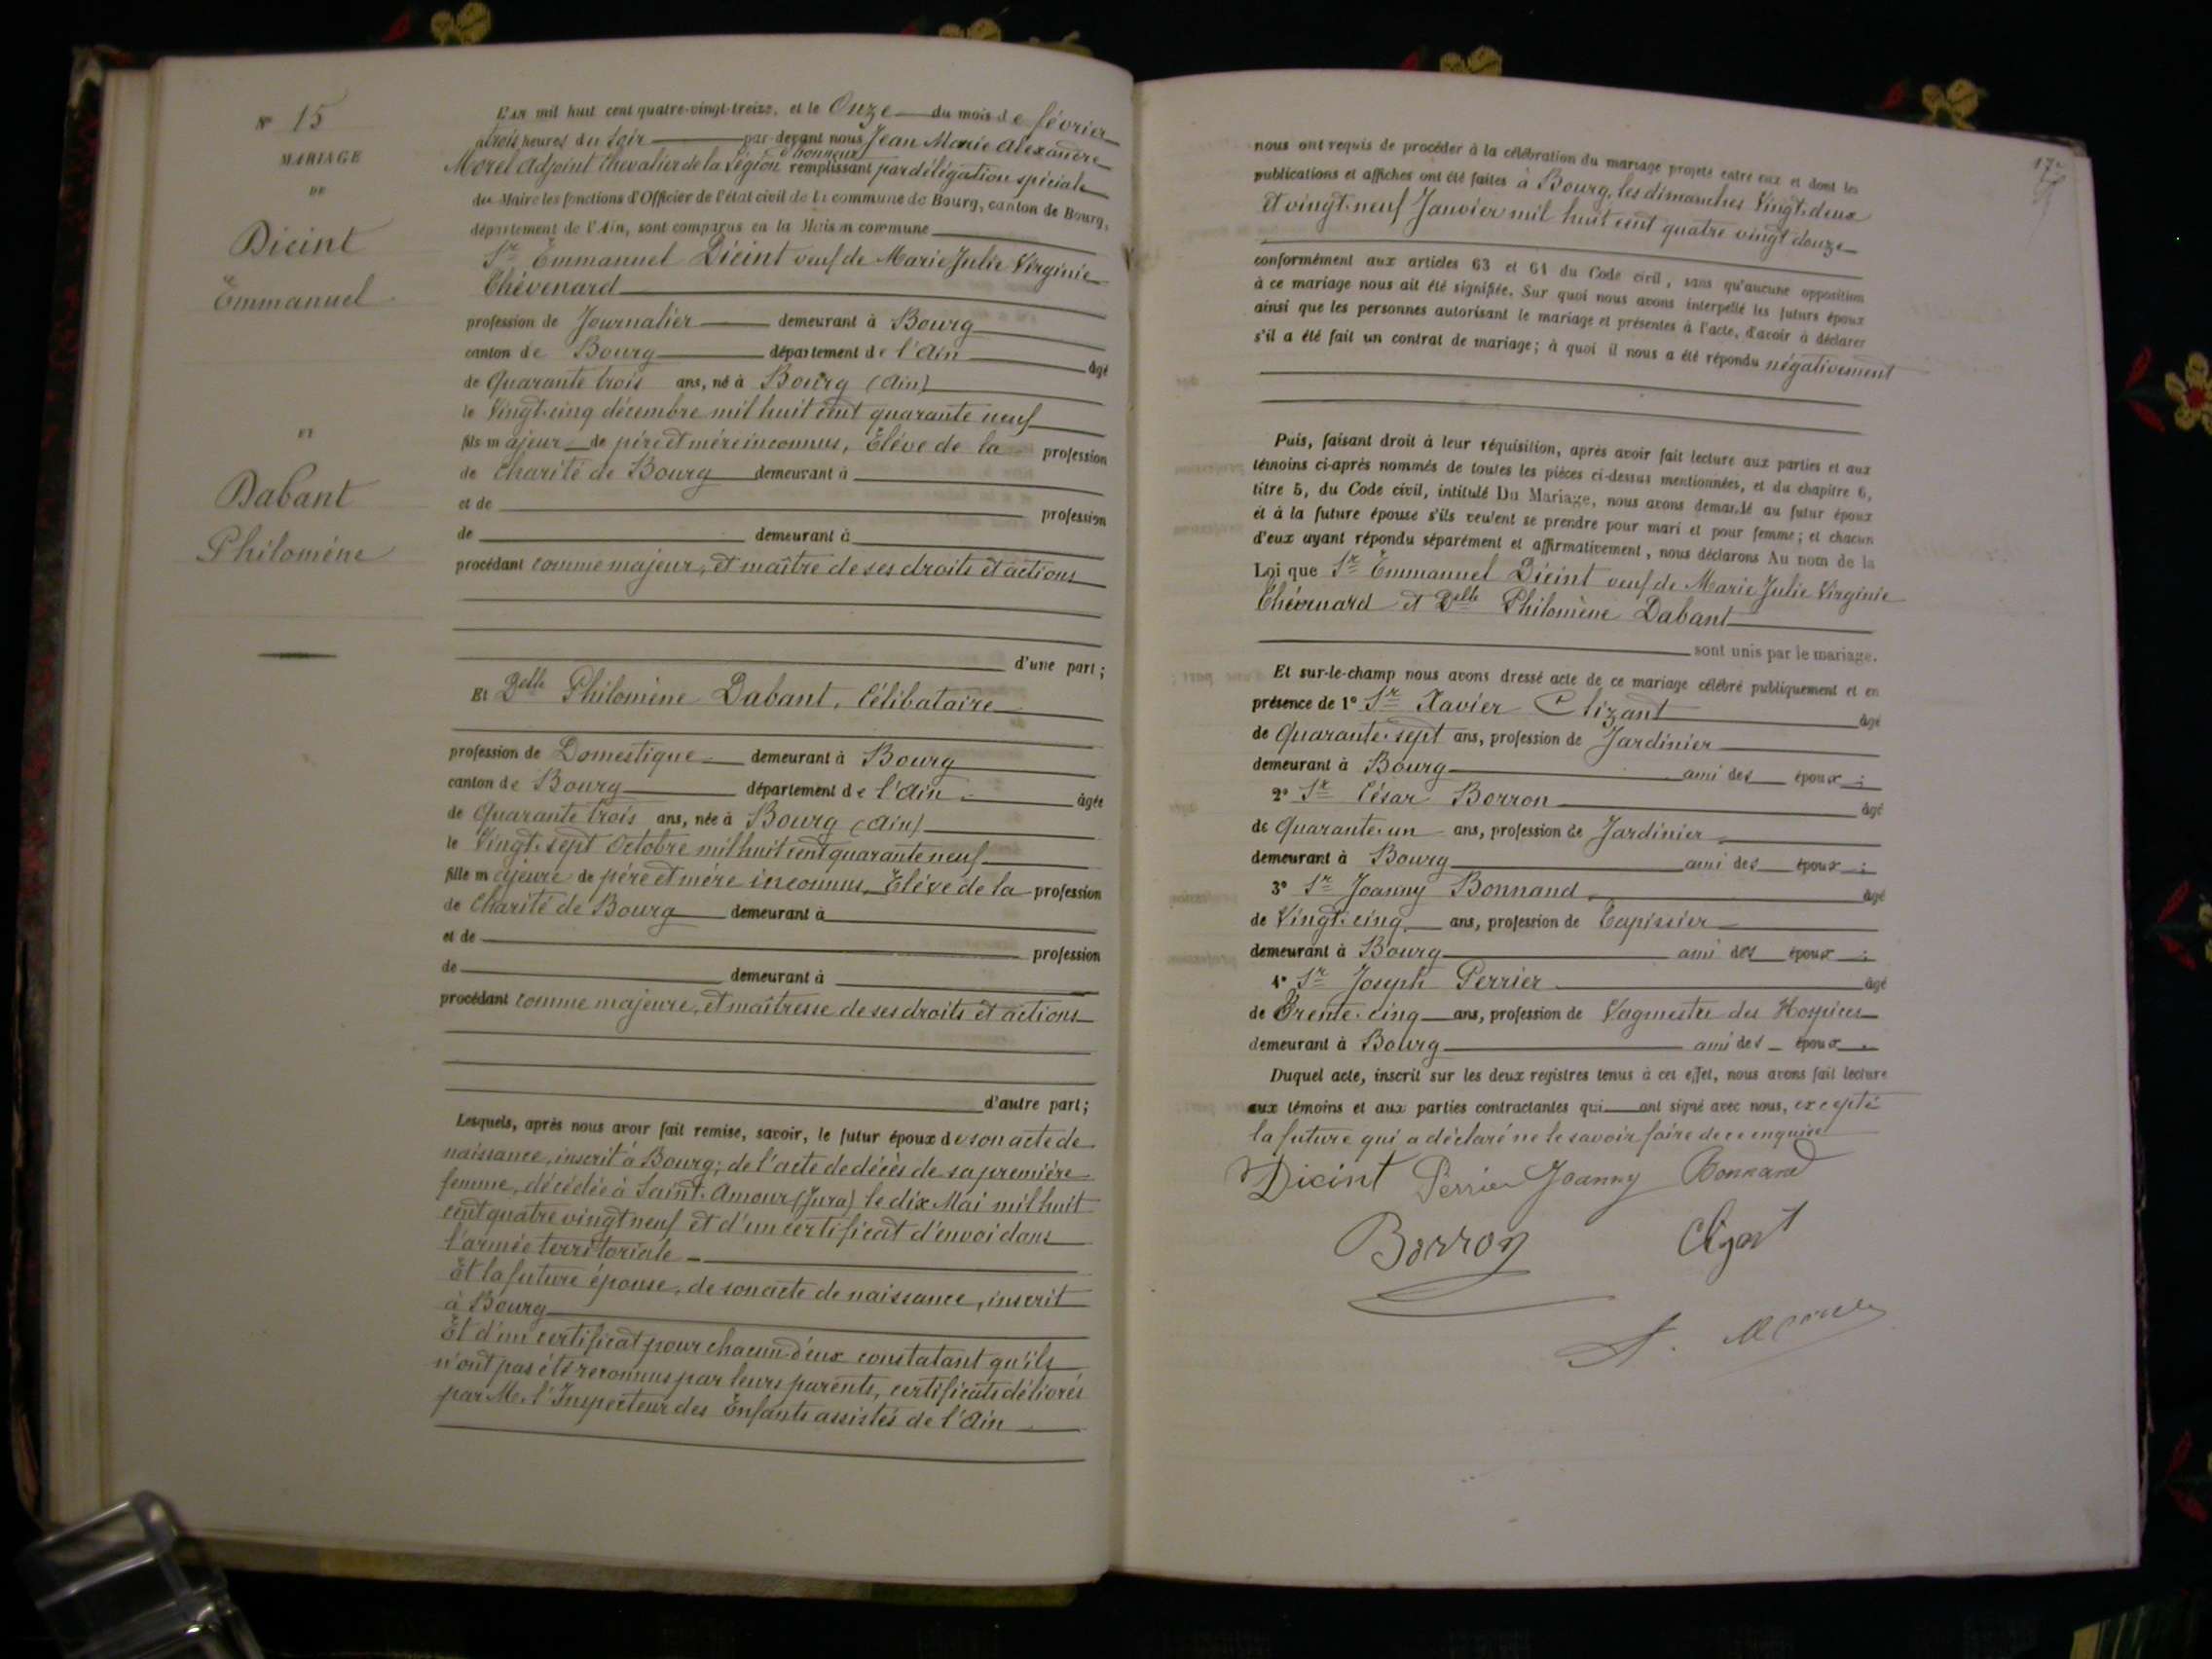 N° 15
MARIAGE
DE
Dicint
Emmanuel
ET
Dabant
Philoméne
L'AN mil huit cent quatre-vingt-treize, et le Onze du mois de février
à trois heures du soir par-devant nous Jean Marie Alexandre
d'honneur
Morel Adjoint Chevalier de la Légion remplissant par délégation spéciale
du Maire les fonctions d'Officier de l'état civil de la commune de Bourg, canton de Bourg,
département de l'Ain, sont comparus en la Maison commune
Sr Emmanuel Dicint veuf de Marie Julie Virginie
Chévenard
profession de Journalier demeurant à Bourg
canton de Bourg département de l'Ain âgé
de Quarante trois ans, né à Bourg (Ain)
le Vingt-cinq décembre mil huit cent quarante neuf
fils majeur de père et mère inconnus, Élève de la profession
de Charité de Bourg demeurant à
et de profession
de demeurant à
procédant comme majeur, et maître de ses droits et actions
d'une part ;
Et Delle Philomène Dabant, Célibataire
profession de Domestique demeurant à Bourg
canton de Bourg département de l'Ain âgée
de Quarante trois ans, née à Bourg (Ain)
le Vingt-sept Octobre mil huit cent quarante neuf
fille majeure de père et mère inconnus, Élève de la profession
de Charité de Bourg demeurant à
et de profession
de demeurant à
procédant comme majeure, et maîtresse de ses droits et actions
d'autre part ;
Lesquels, après nous avoir fait remise, savoir, le futur époux de son acte de
naissance, inscrit à Bourg; de l'acte de décès de sa première
femme, décédée à Saint-Amour (Jura) le dix Mai mil huit
cent quatre vingt neuf et d'un certificat d'envoi dans
l'armée territoriale
Et la future épouse, de son acte de naissance, inscrit
à Bourg
Et d'un certificat pour chacun d'eux constatant qu'ils
n'ont pas été reconnus par leurs parents, certificats délivrés
par Mr. l'Inspecteur des Enfants assistés de l'Ain
17
nous ont requis de procéder à la célébration du mariage projeté entre eux et dont les
publications et affiches ont été faites à Bourg, les dimanches Vingt-deux
et vingt-neuf Janvier mil huit cent quatre vingt douze
conformément aux articles 63 et 64 du Code civil, sans qu'aucune opposition
à ce mariage nous ait été signifiée. Sur quoi nous avons interpellé les futurs époux
ainsi que les personnes autorisant le mariage et présentes à l'acte, d'avoir à déclarer
s'il a été fait un contrat de mariage ; à quoi il nous a été répondu négativement
Puis, faisant droit à leur réquisition, après avoir fait lecture aux parties et aux
témoins ci-après nommés de toutes les pièces ci-dessus mentionnées, et du chapitre 6,
titre 5, du Code civil, intitulé Du Mariage, nous avons demandé au futur époux
et à la future épouse s'ils veulent se prendre pour mari et pour femme ; et chacun
d'eux ayant répondu séparément et affirmativement, nous déclarons Au nom de la
Loi que Sr Emmanuel Dicint veuf de Marie Julie Virginie
Chévenard et Delle Philomène Dabant
sont unis par le mariage.
Et sur-le-champ nous avons dressé acte de ce mariage célébré publiquement et en
présence de 1° Sr Xavier Clizant âgé
de Quarante-sept ans, profession de Jardinier
demeurant à Bourg ami des époux ;
2° Sr César Borron âgé
de Quarante-un ans, profession de Jardinier
demeurant à Bourg ami des époux ;
3° Sr Joanny Bonnand âgé
de Vingt-cinq ans, profession de Tapissier
demeurant à Bourg ami des époux ;
4° Sr Joseph Perrier âgé
de Trente-cinq ans, profession de Vagmestre des Hospices
demeurant à Bourg ami des époux.
Duquel acte, inscrit sur les deux registres tenus à cet effet, nous avons fait lecture
aux témoins et aux parties contractantes qui ont signé avec nous, excepté
la future qui a déclaré ne le savoir faire de ce enquise
Dicint Perrier Joanny Bonnand
Borron Clizant
A. Morel